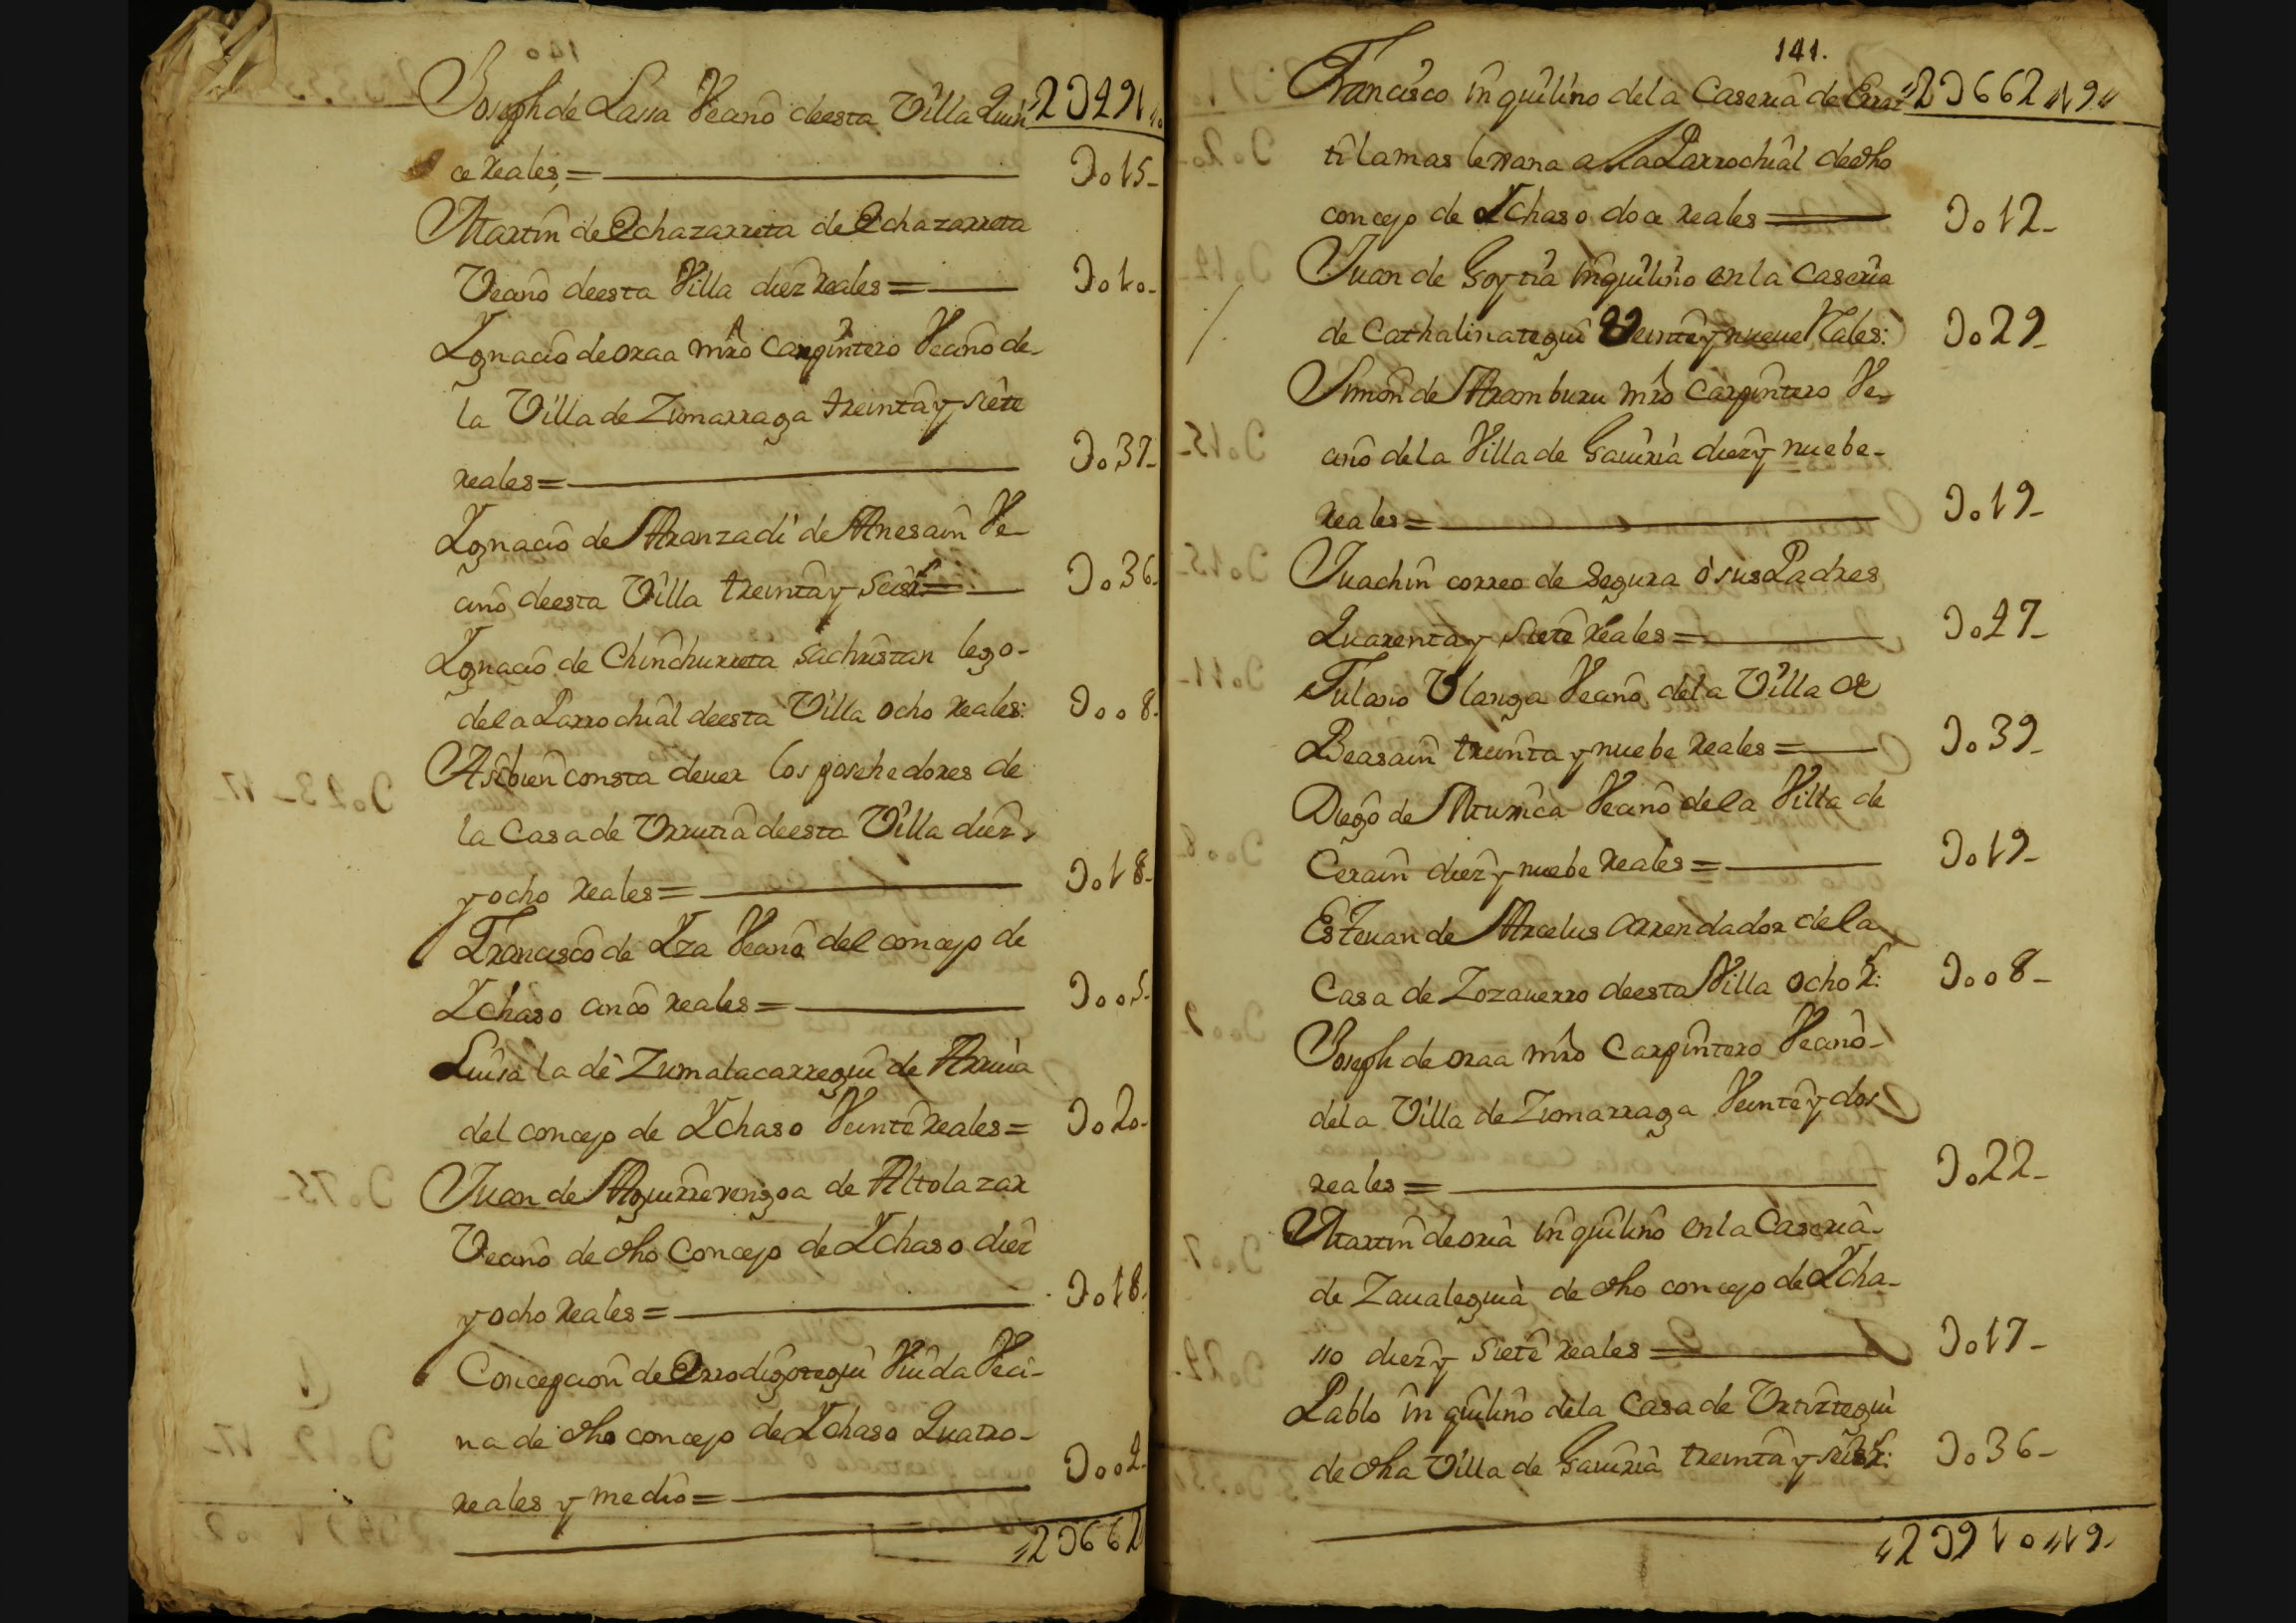 Joseph de Lasa Vecino deesta Villa Quin
ce reales,= Do15-
Martin de Echazarreta de Echazarreta
Vecino deesta Villa diez reales= Do10-
Ygnacio de oraa mro Carpintero Vecino de-
la Villa de Zumarraga treinta y siete
reales= Do37-
Ygnacio de Aranzadi de Anesain Ve-
cino deesta Villa treinta y seis r.= Do36-
Ygnacio de Chinchurreta sachristan lego-
dela Parrochial deesta Villa ocho reales: Doo8-
Asibien consta dever los posehedores de
la Casa de Urrutia deesta Villa diez
y ocho reales= Do18-
Francisco de Yza Vecino del concejo de
Ychaso cinco reales= Doo5-
Luisa la de Zumalacarregui de Arria
del concejo de Ychaso Veinte reales= Do20-
Juan de Aguirrevengoa de Altolazar
Vecino de dho Concejo de Ychaso diez
y ocho reales= Do18-
Concepcion de Orrodigotegui Viuda Veci-
na de dho concejo de Ychaso Quatro-
reales y medio= Doo4-
"2D662
141.
Francisco inquilino dela Caseria de "2D662"19"
tilamas a la Parrochial de dho
concejo de Ychaso doce reales= Do12-
Juan de Goytia inquilino en la Caseria
de Cathalinategui Veinte y nueve Rales: Do29-
Simon de Aramburu mro Carpintero Ve-
cino dela Villa de Gauiria diez y nuebe-
reales= Do19-
Juachin correo de Segura ò sus Padres
Quarenta y siete reales= Do47-
Fulano Ulanga Vecino dela Villa de
Beasain treinta y nuebe reales= Do39-
Diego de Vecino dela Villa de
Cerain diez y nuebe reales= Do19-
Esteuan de Arcelus arrendador dela
Casa de Zozauerro deesta Villa ocho r.: Doo8-
Joseph de oraa mro Carpintero Vecino-
dela Villa de Zumarraga Veinte y dos
reales= Do22-
Martin de oria inquilino en la Caseria-
de Zaualeguia de dho concejo de Ycha-
so diez y siete reales= Do17-
Pablo inquilino dela Casa de Urtiztegui
de dha Villa de Gauiria treinta y seis r.: Do36-
"2D910"19-